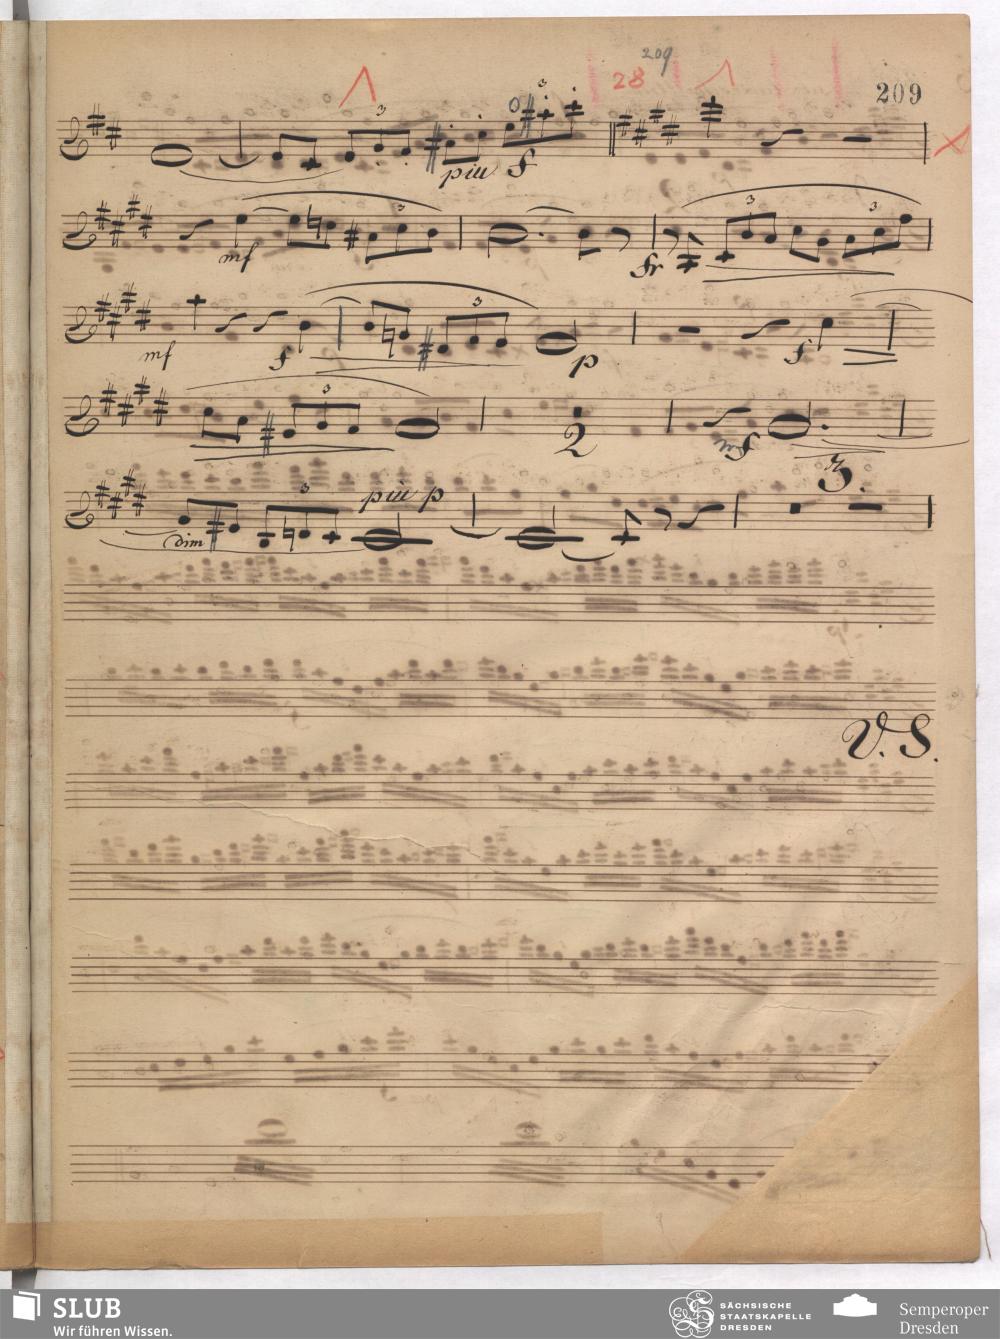 209
28
209
3
3
più f
3
3
3
mf
fr
3
mf
f
p
f
3
2
f
3
più p
3.
dim
V. S.
SLUB
Wir führen Wissen.
SÄCHSISCHE
STAATSKAPELLE
DRESDEN
Semperoper
Dresden